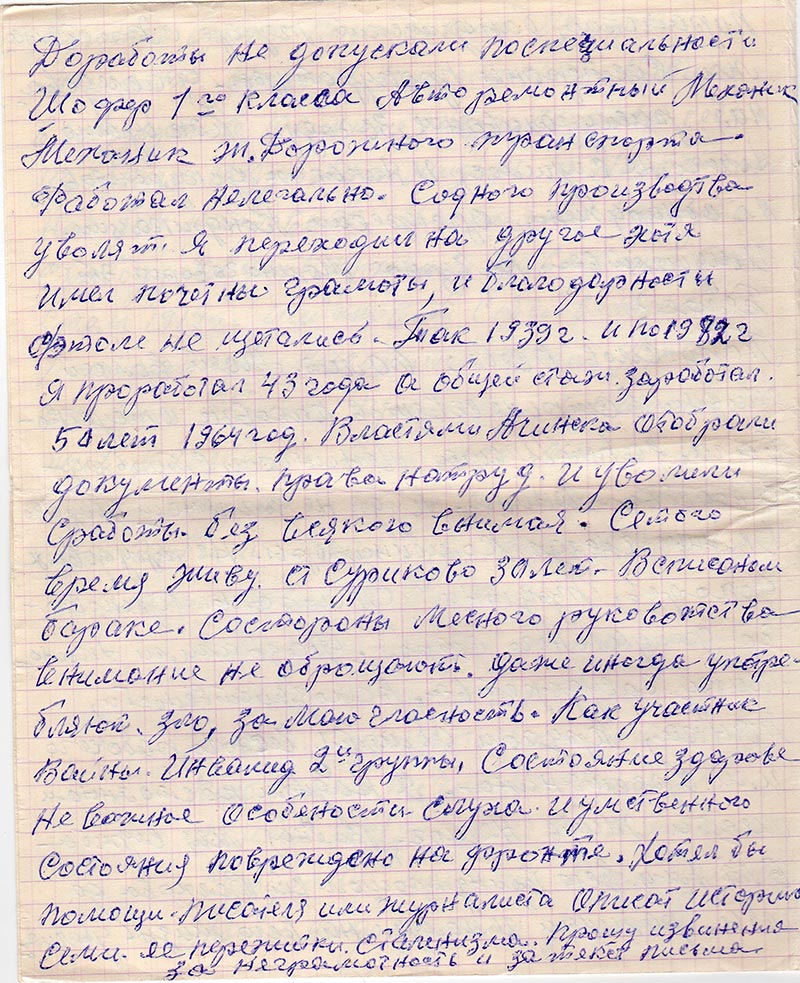 До работы не допускали по специальности
Шофер 1го класса Авторемонтный Механик
Механик ж. Дорожного транспорта.
Работал нелегально. С одного производтва
уволят. Я переходил на другое хотя
имел почетны грамоты, и благодарности
не щетались. Так 1939 г. и по 1982 г
я проработал 43 года а общей стаж заработал.
50 лет 1964 год. Властями Ачинска отобрали
документы. права на труд. и уволили
с работы без всякого вынимая. С етого
время живу. ст Суриково 30 лет. В списаном
бараке. Состороны Месного руководтства
внимание не оброщают. даже иногда употре-
бляют. зло, за мою гласность. Как участник
Войны. Инвалид 2й группы, Состояние здоровье
Не важное особености слуха. и умственного
состояния повреждено на фронте. Хотел бы
помощи. писателя или журналиста описат историю
семи. ее пережитки. Сталинизма. Прошу извинения
за неграмотность и за текст письма.